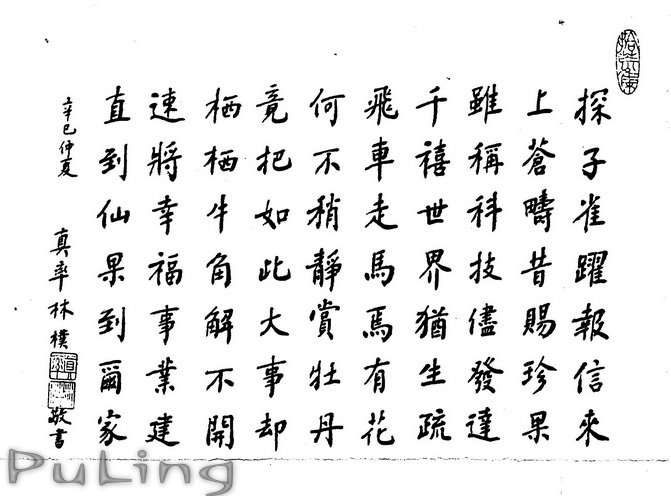 探子雀躍報信來
上蒼疇昔賜珍果
雖稱科技儘發達
千禧世界猶生疏
飛車走馬焉有花
何不稍靜賞牡丹
竟把如此大事却
栖栖牛角解不開
速將幸福事業建
直到仙果到爾家
辛巳仲夏 真率林樸 敬書
PuLing